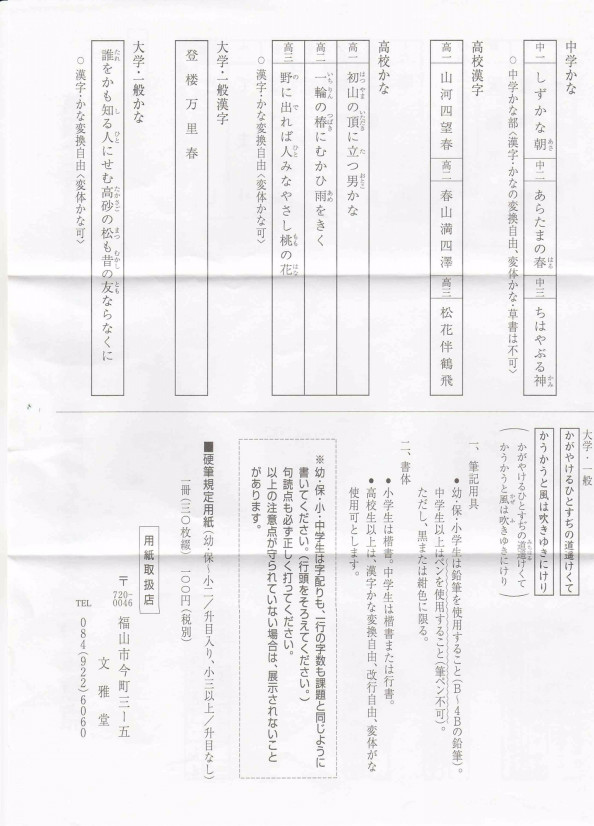 中学かな
中一 しずかな朝 中二 あらたまの春 中三 ちはやぶる神
○中学かな部〈漢字・かなの変換自由、変体かな・草書は不可〉
高校漢字
高一 山河四望春 高二 春山満四澤 高三 松花伴鶴飛
高校かな
高一 初山の頂に立つ男かな
高二 一輪の椿にむかひ雨をきく
高三 野に出れば人みなやさし桃の花
○漢字・かな変換自由〈変体かな可〉
大学・一般漢字
登楼万里春
大学・一般かな
誰をかも知る人にせむ高砂の松も昔の友ならなくに
○漢字・かな変換自由〈変体かな可〉
大学・一般
かがやけるひとすぢの道遥けくて
かうかうと風は吹きゆきにけり
(かがやけるひとすぢの道遥けくて
かうかうと風は吹きゆきにけり)
一、筆記用具
●幼・保・小学生は鉛筆を使用すること(B〜4Bの鉛筆)。
中学生以上はペンを使用すること(筆ペン不可)。
ただし、黒または紺色に限る。
二、書体
●小学生は楷書。中学生は楷書または行書。
●高校生以上は、漢字かな変換自由、改行自由、変体がな
使用可とします。
※幼・保・小・中学生は字配りも、一行の字数も課題と同じように
書いてください。(行頭をそろえてください。)
句読点も必ず正しく打ってください。
以上の注意点が守られていない場合は、展示されないこと
があります。
■硬筆規定用紙(幼・保〜小二/升目入り、小三以上/升目なし)
一冊(三〇枚綴)一〇〇円(税別)
用紙取扱店
〒720-0046 福山市今町三ー五
文雅堂
TEL 084(922)6060